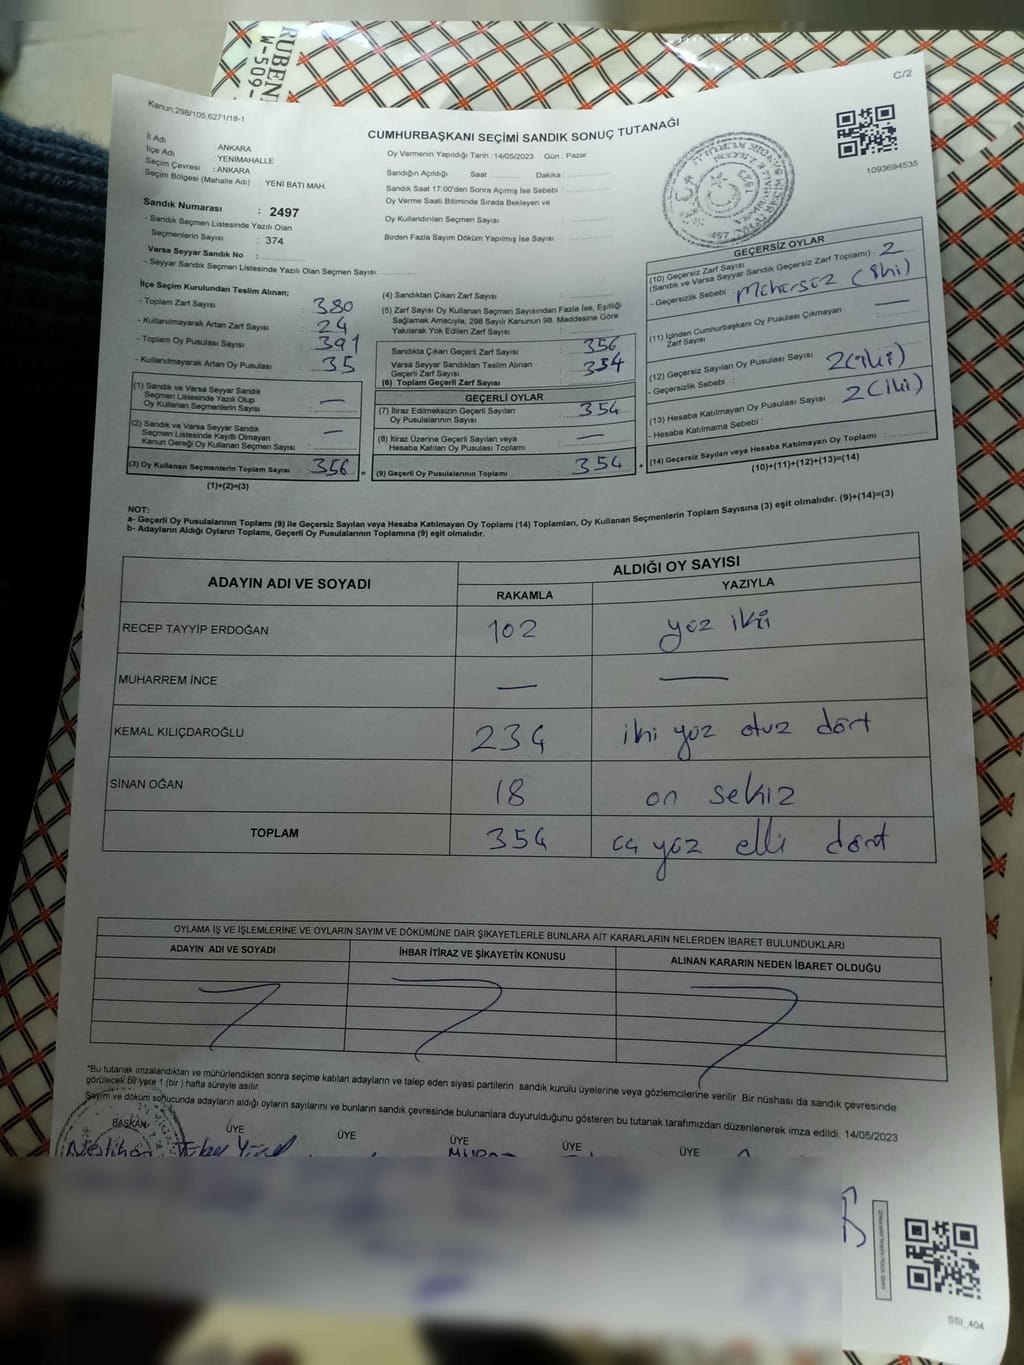 RUBEN
W-509-
C/2
Kanun;298/105;6271/18-1
CUMHURBAŞKANI SEÇİMİ SANDIK SONUÇ TUTANAĞI
1093694535
İl Adı : ANKARA
İlçe Adı : YENİMAHALLE
Seçim Çevresi : ANKARA
Seçim Bölgesi (Mahalle Adı) : YENİ BATI MAH.
Sandık Numarası : 2497
- Sandık Seçmen Listesinde Yazılı Olan
Seçmenlerin Sayısı : 374
Varsa Seyyar Sandık No :
- Seyyar Sandık Seçmen Listesinde Yazılı Olan Seçmen Sayısı:
Oy Vermenin Yapıldığı Tarih : 14/05/2023 Gün : Pazar
Sandığın Açıldığı Saat Dakika :
Sandık Saat 17.00'den Sonra Açımış İse Sebebi :
Oy Verme Saati Bitiminde Sırada Bekleyen ve
Oy Kullandırılan Seçmen Sayısı :
Birden Fazla Sayım Döküm Yapılmış İse Sayısı :
İlçe Seçim Kurulundan Teslim Alınan;
- Toplam Zarf Sayısı : 380
- Kullanılmayarak Artan Zarf Sayısı : 24
- Toplam Oy Pusulası Sayısı : 391
- Kullanılmayarak Artan Oy Pusulası : 35
(1) Sandık ve Varsa Seyyar Sandık
Seçmen Listesinde Yazılı Olup
Oy Kullanan Seçmenlerin Sayısı : —
(2) Sandık ve Varsa Seyyar Sandık
Seçmen Listesinde Kayıtlı Olmayan
Kanun Gereği Oy Kullanan Seçmen Sayısı : —
(3) Oy Kullanan Seçmenlerin Toplam Sayısı : 356 =
(1)+(2)=(3)
(4) Sandıktan Çıkan Zarf Sayısı :
(5) Zarf Sayısı Oy Kullanan Seçmen Sayısından Fazla İse, Eşitliği
Sağlamak Amacıyla; 298 Sayılı Kanunun 98. Maddesine Göre
Yakılarak Yok Edilen Zarf Sayısı :
Sandıkta Çıkan Geçerli Zarf Sayısı : 356
Varsa Seyyar Sandıktan Teslim Alınan
Geçerli Zarf Sayısı : 354
(6) Toplam Geçerli Zarf Sayısı :
GEÇERLİ OYLAR
(7) İtiraz Edilmeksizin Geçerli Sayılan
Oy Pusulalarının Sayısı : 354
(8) İtiraz Üzerine Geçerli Sayılan veya
Hesaba Katılan Oy Pusulası Toplamı : —
(9) Geçerli Oy Pusulalarının Toplamı : 354 +
GEÇERSİZ OYLAR
(10) Geçersiz Zarf Sayısı
(Sandık ve Varsa Seyyar Sandık Geçersiz Zarf Toplamı) : 2
- Geçersizlik Sebebi
(11) İçinden Cumhurbaşkanı Oy Pusulası Çıkmayan
Zarf Sayısı : —
(12) Geçersiz Sayılan Oy Pusulası Sayısı 2 (iki)
- Geçersizlik Sebebi :
(13) Hesaba Katılmayan Oy Pusulası Sayısı 2 (iki)
- Hesaba Katılmama Sebebi :
(14) Geçersiz Sayılan veya Hesaba Katılmayan Oy Toplamı :
(10)+(11)+(12)+(13)=(14)
NOT:
a- Geçerli Oy Pusulalarının Toplamı (9) ile Geçersiz Sayılan veya Hesaba Katılmayan Oy Toplamı (14) Toplamları, Oy Kullanan Seçmenlerin Toplam Sayısına (3) eşit olmalıdır. (9)+(14)=(3)
b- Adayların Aldığı Oyların Toplamı, Geçerli Oy Pusulalarının Toplamına (9) eşit olmalıdır.
ADAYIN ADI VE SOYADI ALDIĞI OY SAYISI
RAKAMLA YAZIYLA
RECEP TAYYİP ERDOĞAN 102 yüz iki
MUHARREM İNCE — —
KEMAL KILIÇDAROĞLU 234 iki yüz otuz dört
SİNAN OĞAN 18 on sekiz
TOPLAM 354 yüz elli dört
OYLAMA İŞ VE İŞLEMLERİNE VE OYLARIN SAYIM VE DÖKÜMÜNE DAİR ŞİKAYETLERLE BUNLARA AİT KARARLARIN NELERDEN İBARET BULUNDUKLARI
ADAYIN ADI VE SOYADI İHBAR İTİRAZ VE ŞİKAYETİN KONUSU ALINAN KARARIN NEDEN İBARET OLDUĞU
*Bu tutanak imzalandıktan ve mühürlendikten sonra seçime katılan adayların ve talep eden siyasi partilerin sandık kurulu üyelerine veya gözlemcilerine verilir .Bir nüshası da sandık çevresinde
görülecek bir yere 1 (bir ) hafta süreyle asılır.
Sayım ve döküm sonucunda adayların aldığı oyların sayılarını ve bunların sandık çevresinde bulunanlara duyurulduğunu gösteren bu tutanak tarafımızdan düzenlenerek imza edildi. 14/05/2023
BAŞKAN ÜYE ÜYE ÜYE ÜYE ÜYE
SSI_404